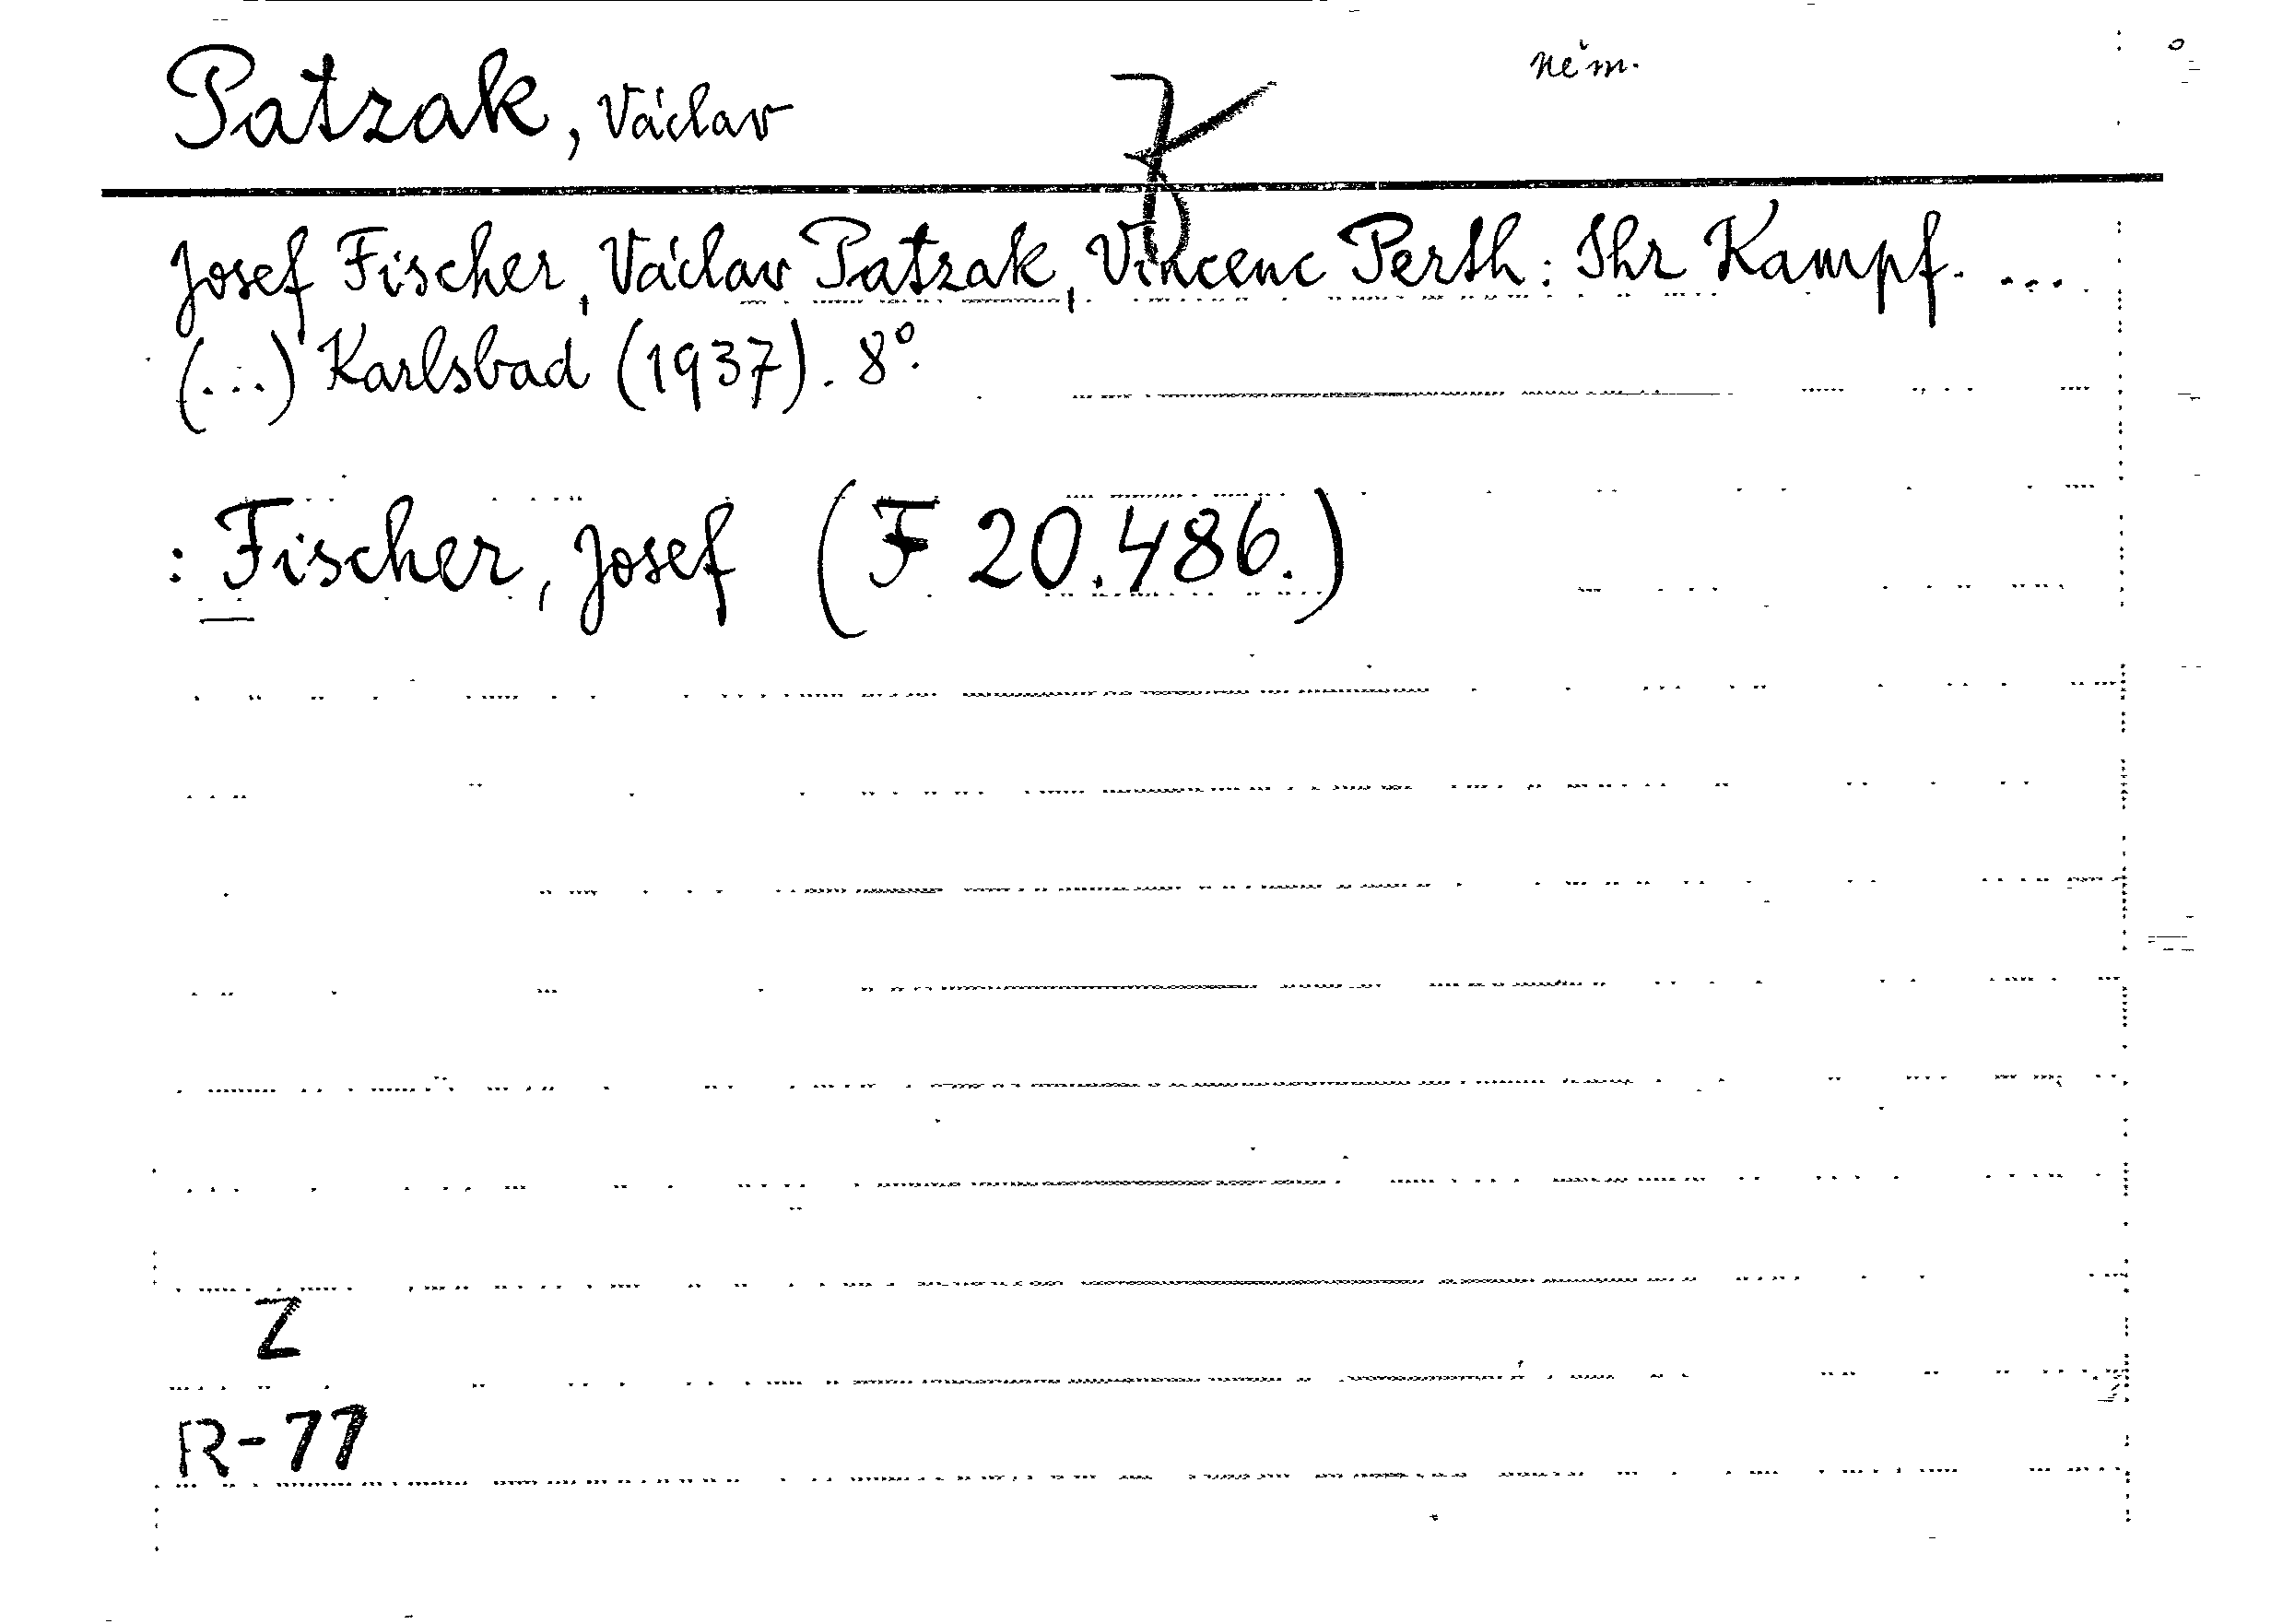 Patzak, Václav
něm.
Josef Fischer, Václav Patzak, Vincenc Perth: Ihr Kampf. ...
(...) Karlsbad (1937). 8°.
: Fischer, Josef (F 20.486.)
Z
R-77